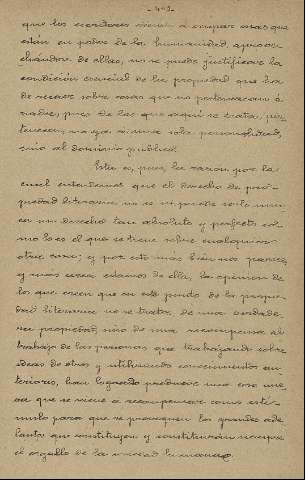 que los escritores vienen á ocupar cosas que
están en poder de la humanidad, aprove-
chándose de ellas, no se puede justificar la
condición esencial de la propiedad que ha
de recaer sobre cosas que no pertenezcan á
nadie, pues de las que aquí se trata, per-
tenecen, no ya á una sola personalidad,
sino al dominio público.
Esta es, pues, la razón por la
cual entendemos que el derecho de pro-
piedad literaria no es ni puede serlo nunca
un derecho tan absoluto y perfecto co-
mo lo es el que se tiene sobre cualquiera
otra cosa; y por esto más bien nos parece,
y más cerca estamos de ella, la opinión de
los que creen que en este punto de la propie-
dad literaria no se trata de una verdade-
ra propiedad, sino de una recompensa al
trabajo de las personas que trabajando sobre
ideas de otros y utilizando conocimientos an-
teriores, han logrado producir una cosa nue-
va que se viene á recompensar como estí-
mulo para que se prosiguen los grandes ade-
lantos que constituyen y constituirán siempre
el orgullo de la sociedad humana.